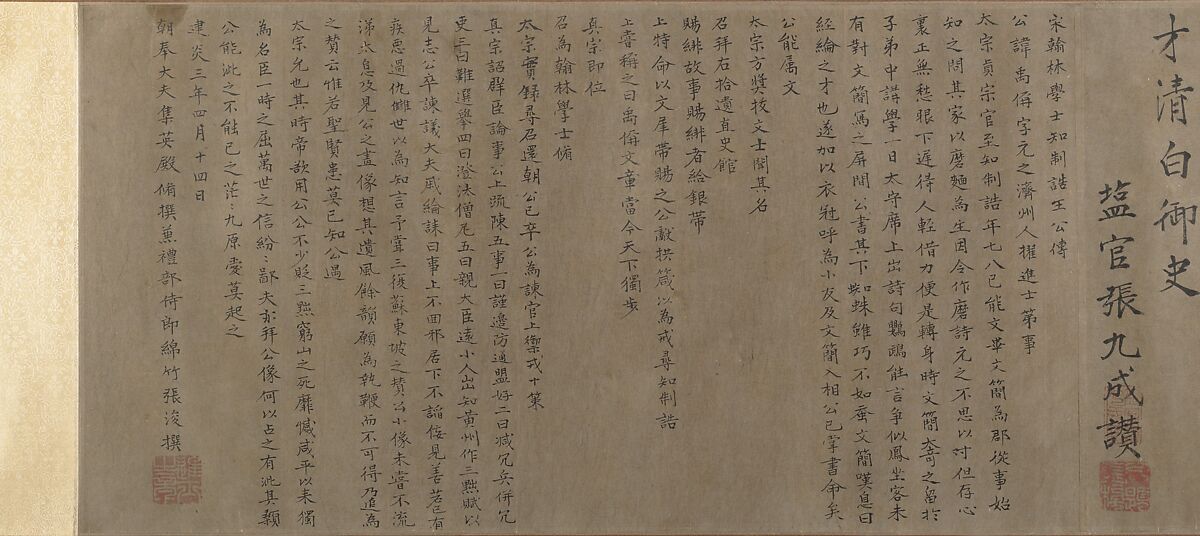 才清白御史
塩官張九成讃
宋翰林學士知制誥王公傳
公諱禹偁字元之濟州人擢進士第事
太宗真宗官至知制誥年七八已能文畢文簡為郡從事始
知之問其家以磨麺為生因令作磨詩元之不思以対但存心
裏正無愁眼下遲得人輕借力便是轉身時文簡大奇之留於
子弟中講學一日太守席上出詩句鸚鵡能言争似鳳坐客未
有對文簡寫之屏間公書其下蜘蛛雖巧不如蚕文簡嘆息曰
經綸之才也遂加以衣冠呼為小友及文簡入相公已掌書命矣
公能属文
太宗方奬拔文士聞其名
召拜右拾遺直史館
賜緋故事賜緋者給銀帶
上特命以文犀帶賜之公獻拱箴以為戒尋知制誥
上嘗稱之曰禹偁文章當今天下獨步
真宗即位
召為翰林學士脩
太宗實録尋召還朝公已卒公為諫官上禦戎十策
真宗詔群臣論事公上疏陳五事一曰謹邊防通盟好二曰减冗兵併冗
吏三曰難選舉四曰澄汰僧尼五曰親大臣遠小人出知黄州作三黜賦以
見志公卒諫議大夫戚綸誄曰事上不回邪居下不謟佞見善若己有
疾惡過仇讎世以為知言予嘗三復蘇東坡之賛公小像未嘗不流
涕太息及見公之畫像想其遺風餘韻願為執鞭而不可得乃追為
之賛云惟若聖賢患莫己知公遇
太宗允也其時帝欲用公公不少貶三黜窮山之死靡憾咸平以来獨
為名臣一時之屈萬世之信紛：鄙夫亦拜公像何以占之有泚其顙
公能泚之不能已之茫：九原愛莫起之
建炎三年四月十四日
朝奉大夫集英殿脩撰蒹禮部侍郎綿竹張浚撰